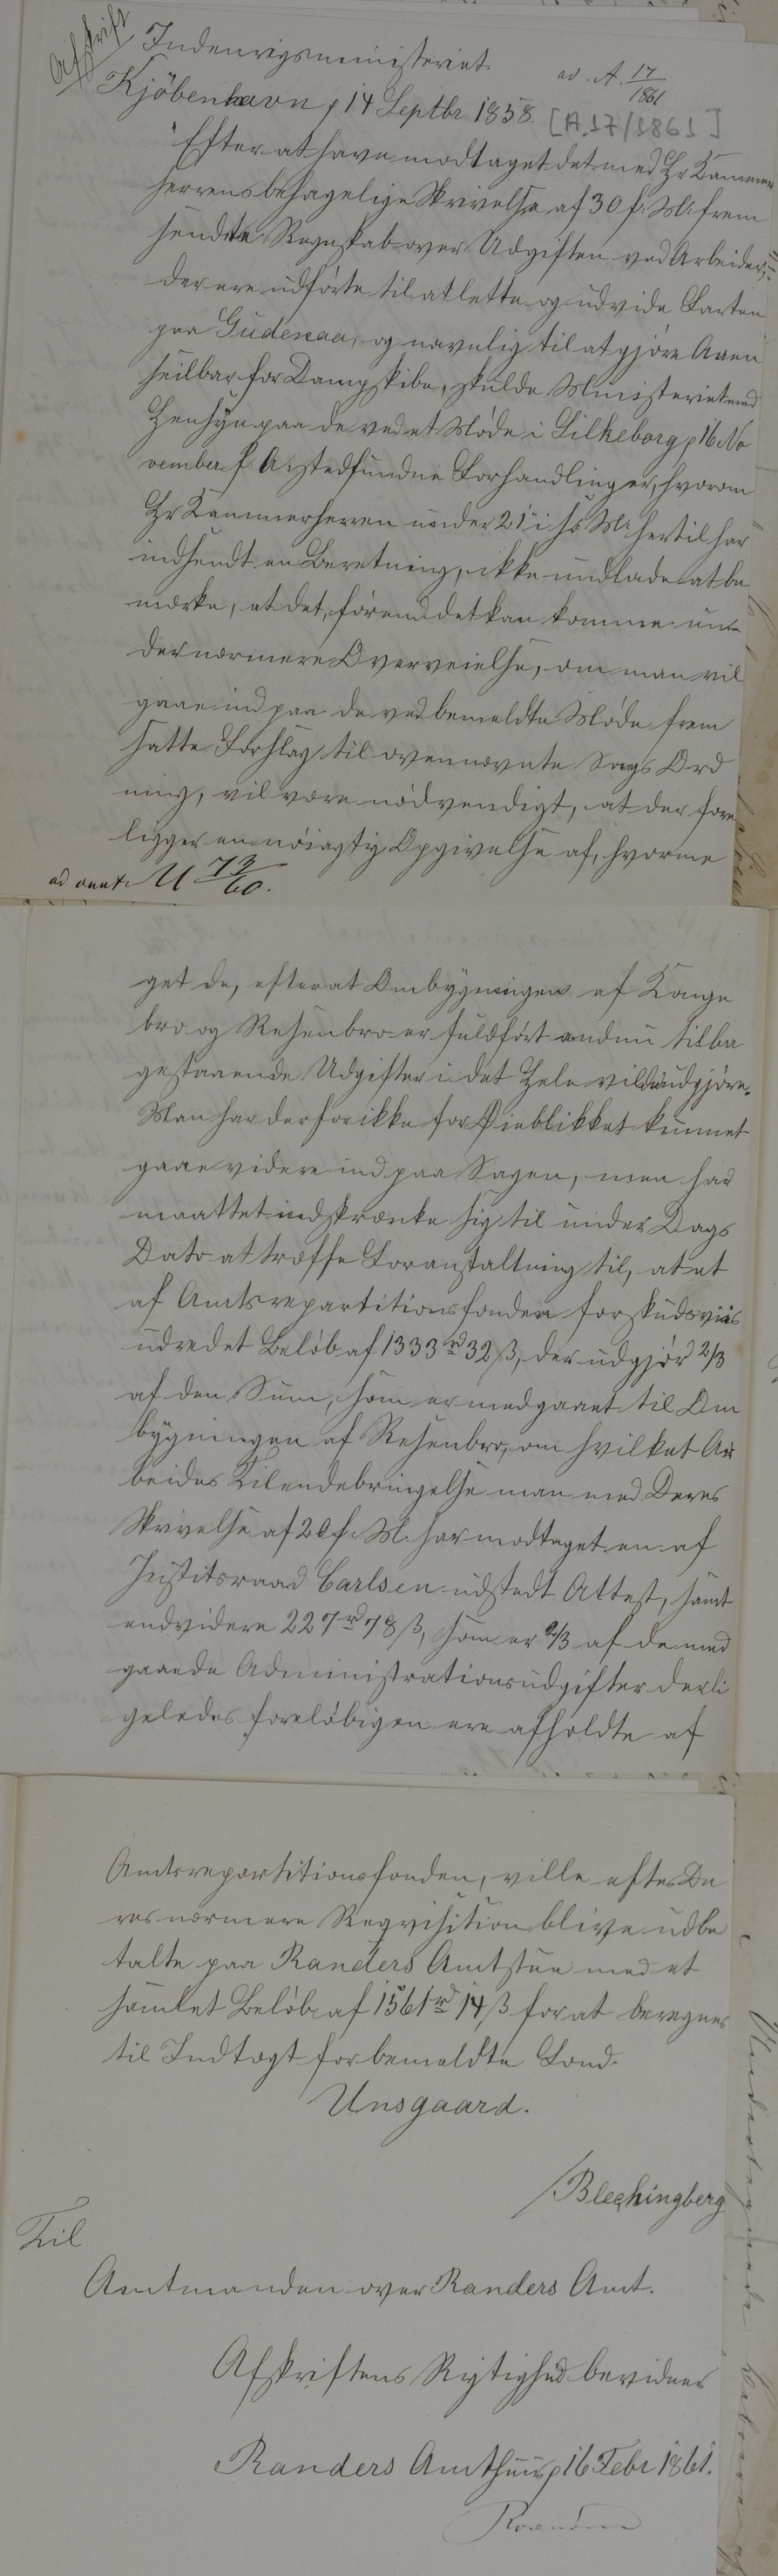 Afskrift
Indenrigsministeriet.
ad. A. 17/1861
Kjöbenhavn, 14 Septbr 1858.
[A.17/1861]
Efter at have modtaget det med Hr Kammer
herrens behagelige Skrivelse af 30 f. M. frem
sendte Regnskab over Udgiften ved Arbeider,
der ere udförte til at lette og udvide Farten
paa Gudenaa, og navnlig til at gjöre Aaen
seilbar for Dampskibe, skulde Ministeriet med
Hensyn paa de ved et Möde i Silkeborg, 16 No
vember f. A. stedfundne Forhandlinger, hvorom
Hr Kammerherren under 21 i s. M. hertil har
indsendt en Beretning, ikke undlade at be
mærke, at det, förend det kan komme un-
der nærmere Overveielse, om man vil
gaae ind paa de ved bemeldte Möde frem
satte Forslag til ovennævnte Sags Ord
ning, vil være nödvendigt, at der fore
ligger en nöiagtig Opgivelse af, hvorme
ad U 73/60.
get de, efter at Ombygningen af Konge
bro og Resenbro er fuldfört endnu tilba
gestaaende Udgifter i det Hele ville udgjöre.
Man har derfor ikke for Öieblikket kunnet
gaae videre ind paa Sagen, men har
maattet indskrænke sig til under Dags
Dato at træffe Foranstaltning til, at et
af Amtsrepartitionsfonden forskudsviis
udredet Belöb af 1333 rd 32 ß, der udgjör 2/3
af den Sum, som er medgaaet til Om
bygningen af Resenbro, om hvilket Ar
beides Tilendebringelse man med Deres
Skrivelse af 20 f. M. har modtaget en af
Justitsraad Carlsen udstedt Attest, samt
endvidere 227 rd 78 ß, som er 2/3 af de med
gaaede Administrationsudgifter der li
geledes forelöbigen ere afholdte af
Amtsrepartitionsfonden, ville efter De
res nærmere Reqvisition blive udbe
talte paa Randers Amtstue med et
samlet Belöb af 1561 rd 14 ß for at beregnes
til Indtægt for bemeldte Fond.
Unsgaard.
/Blechingberg
Til
Amtmanden over Randers Amt.
Afskriftens Rigtighed bevidnes
Randers Amthuus, 16 Febr 1861.
Rosenörn